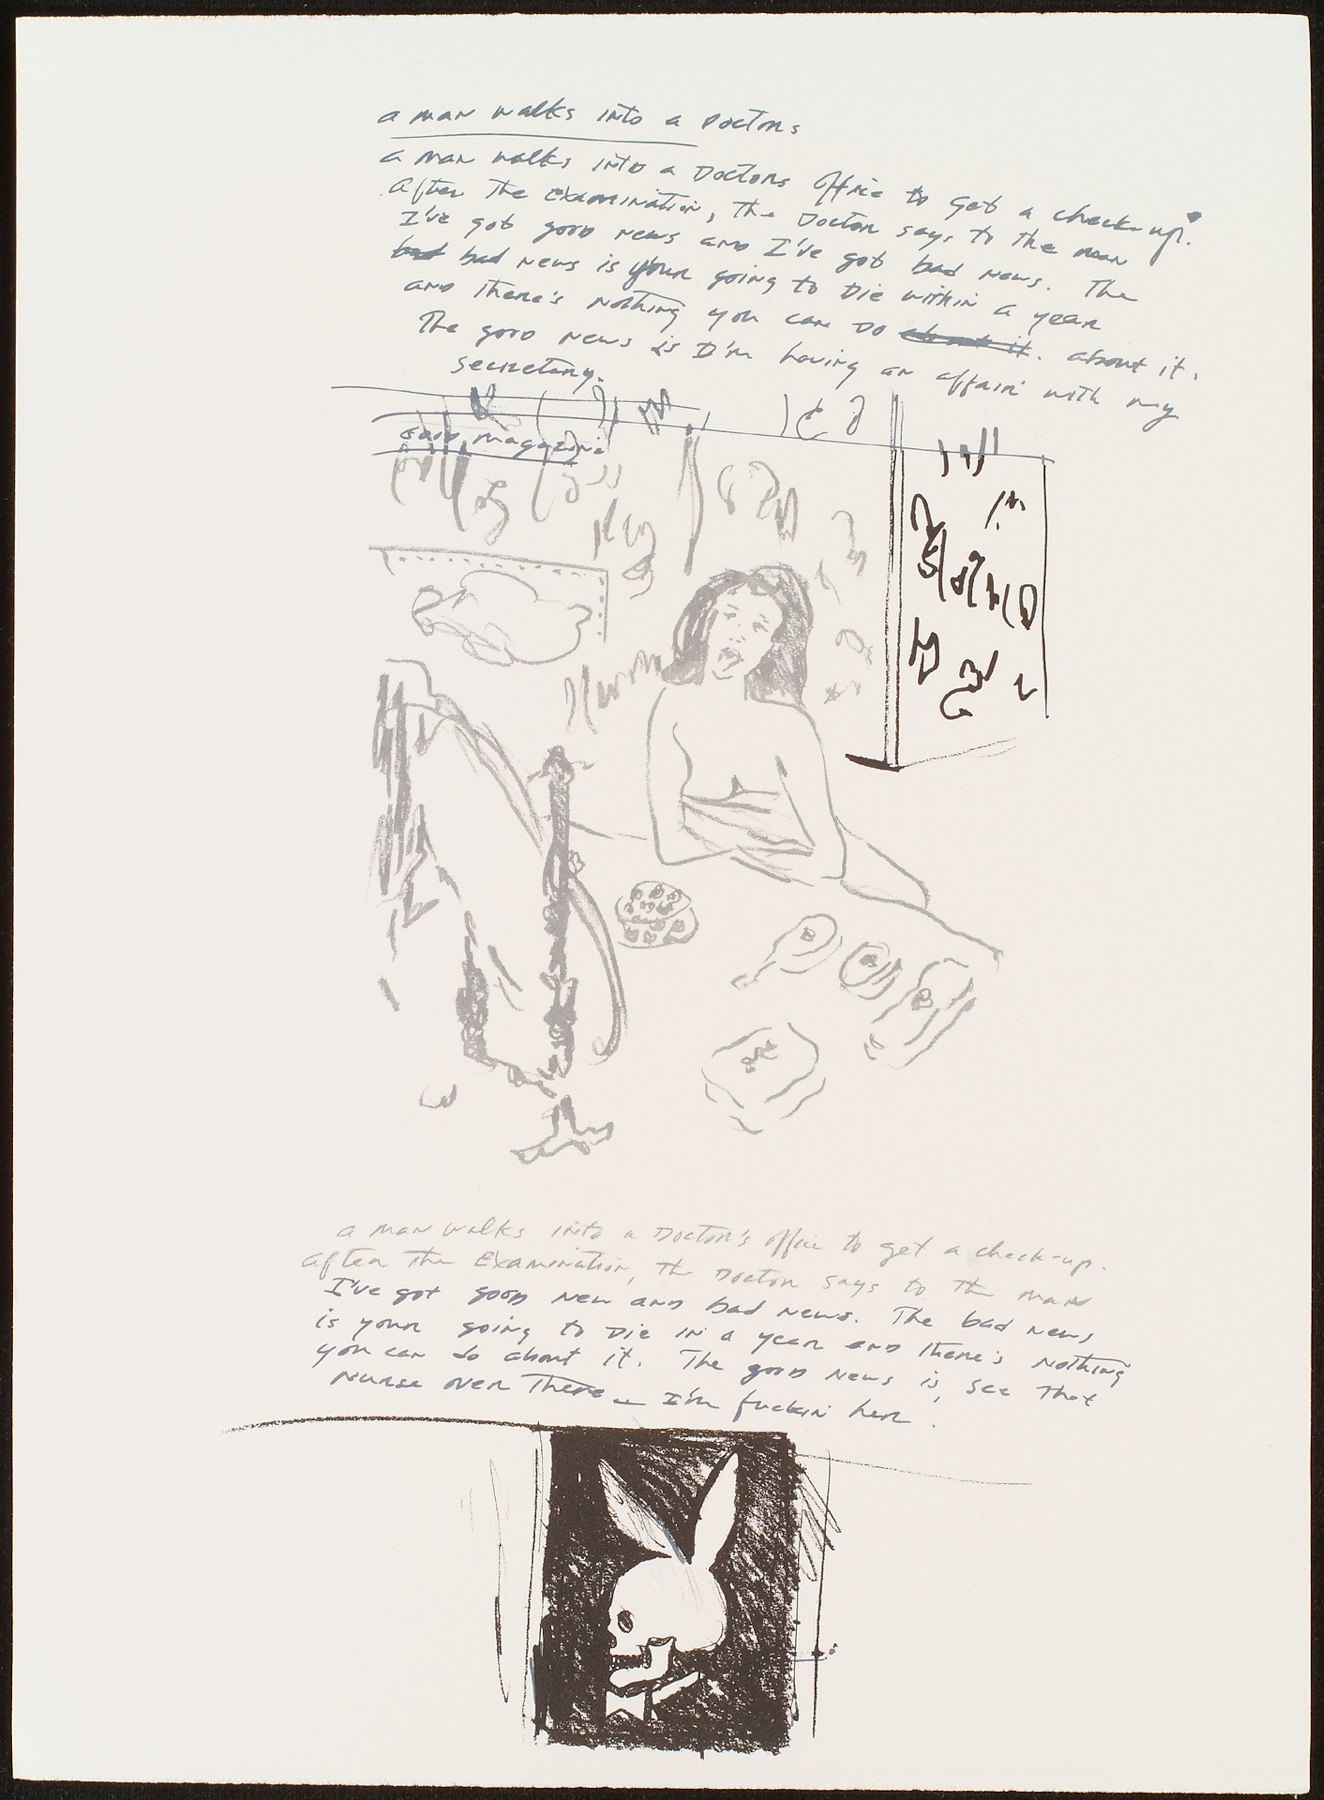 a man walks into a Doctors
a man walks into a Doctors office to get a check-up.
After the Examination, the Doctor says to the man
I've got good news and I've got bad news. The
bad bad news is your going to Die within a year
and there's nothing you can Do about it. about it.
The good news is I'm having an affair with my
secretary.
magazine
a man walks into a Doctor's office to get a check-up.
after the Examination, the Doctor says to the man
I've got good new and bad news. The bad news
is your going to Die in a year and there's nothing
you can do about it. The good news is, see that
nurse over there — I'm fuckin her.